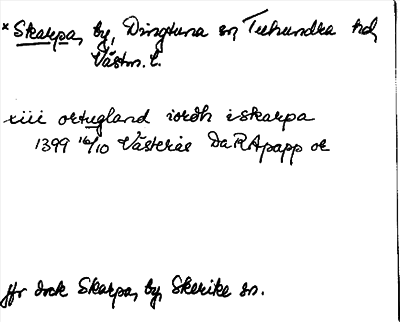 * Skarpa, by, Dingtuna sn, Tuhundra hd,
Västm. l.
xiii ortugland iordh i skarpa
1399 16/10 Västerås Da RApapp or
jfr dock Skarpa, by, Skerike sn.